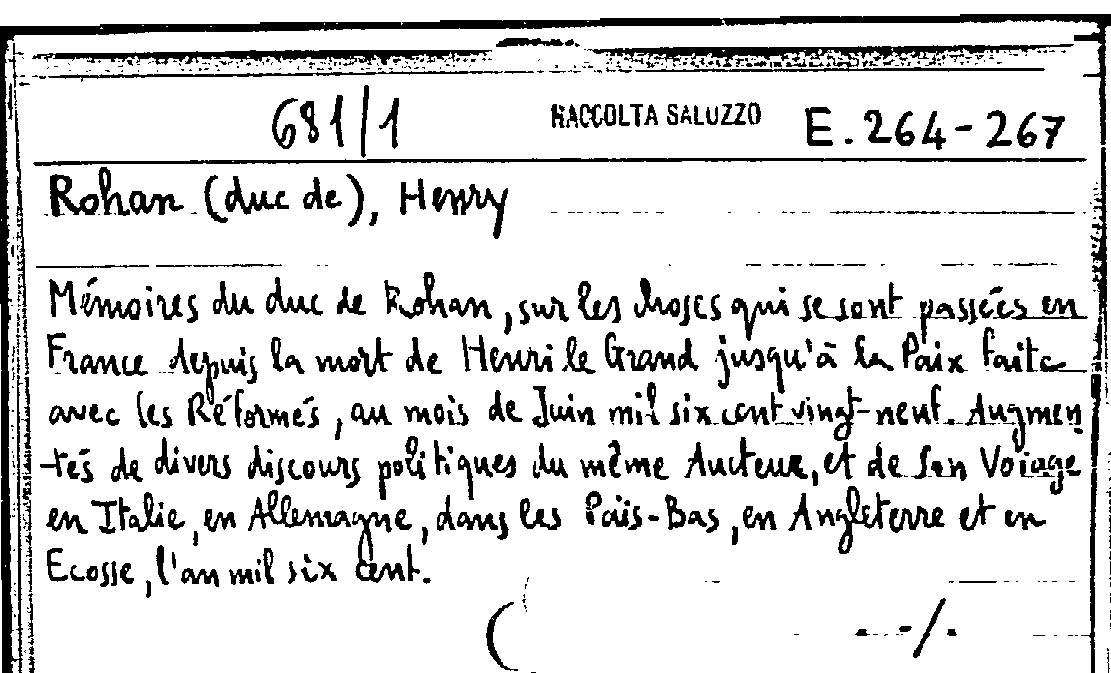 681/1 RACCOLTA SALUZZO E.264-267
Rohan (duc de), Henry
Mémoires du duc de Rohan, sur les choses qui se sont passées en
France depuis la mort de Henri le Grand jusqu'à la Paix faite
avec les Réformés, au mois de Juin mil six cent vingt-neuf. Augmen
-tés de divers discours politiques du même Aucteur, et de son Voiage
en Italie, en Allemagne, dans les Païs-Bas, en Angleterre et en
Ecosse, l'an mil six cent.
--/.